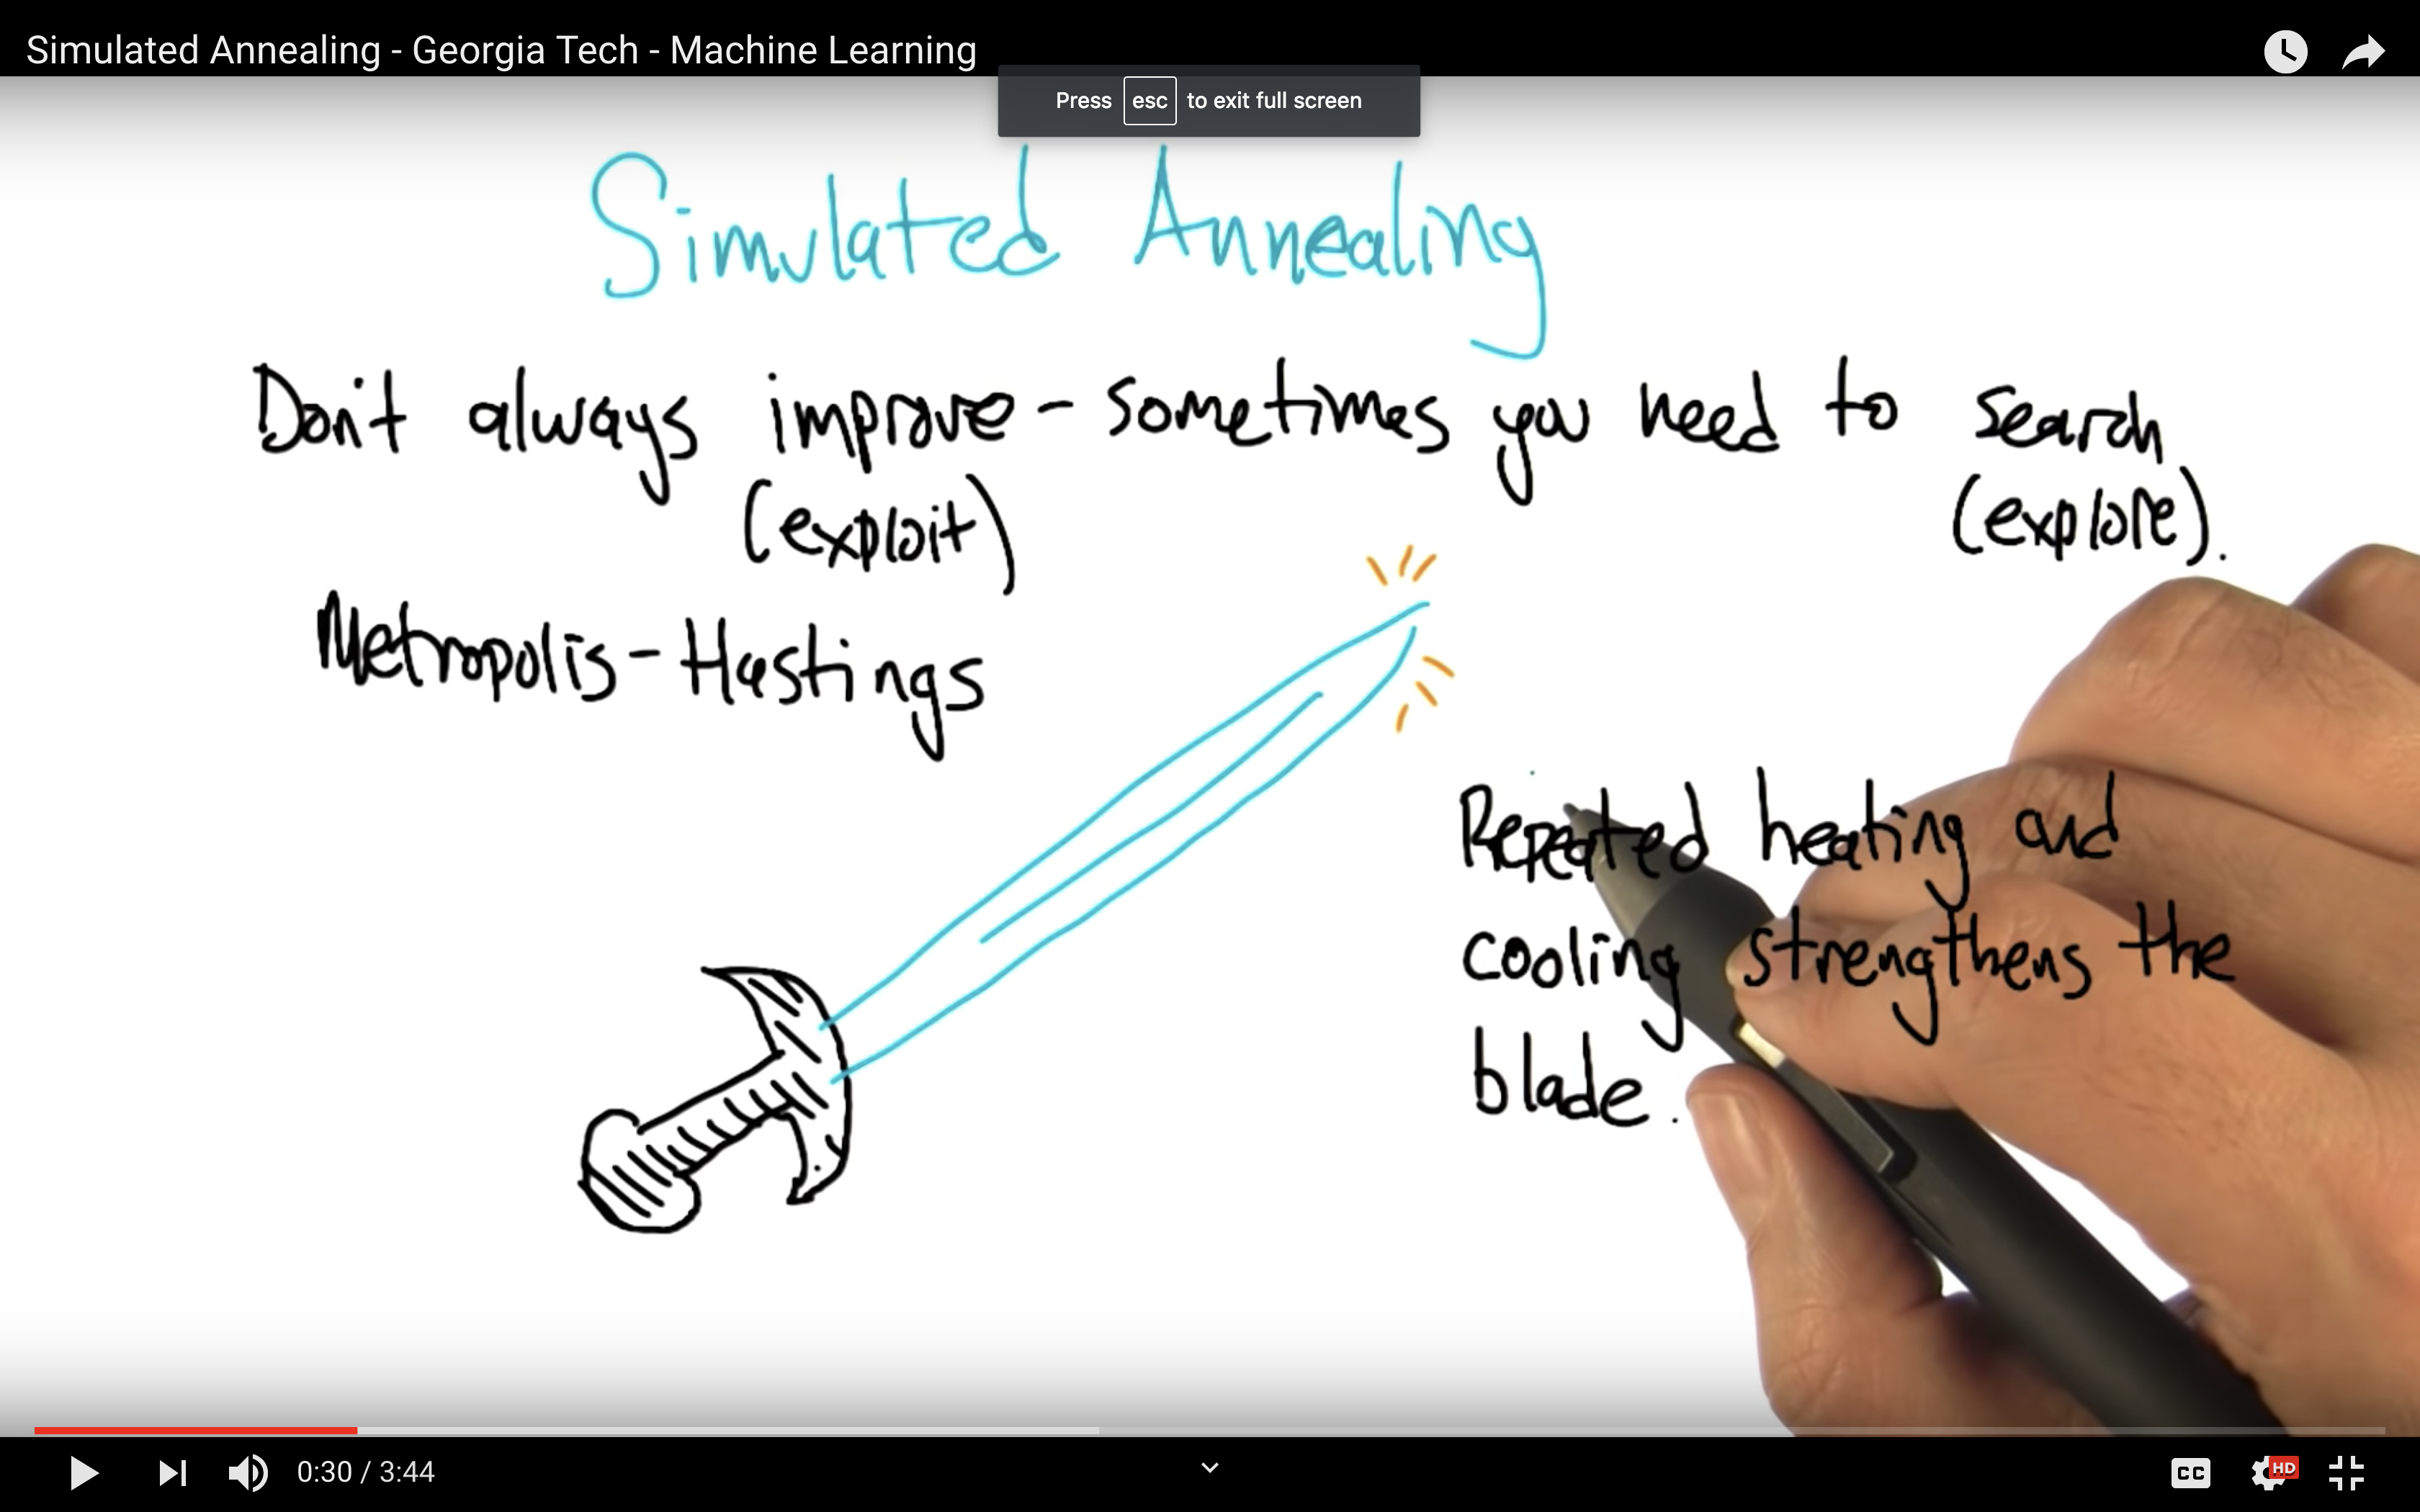 Simulated Annealing - Georgia Tech - Machine Learning
Press esc to exit full screen
Simulated Annealing
Don't always improve - sometimes you need to search
(exploit) (explore).
Metropolis - Hastings
Repeated heating and
cooling strengthens the
blade.
0:30 / 3:44
CC HD